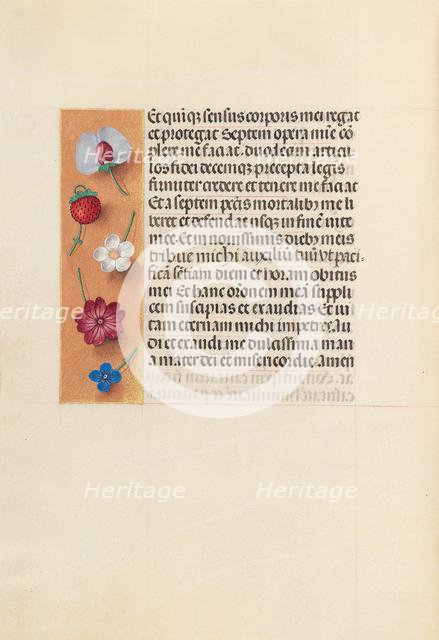 Et qui q3 sensus corporis mei regat
et protegat Septem opera mīe cō
plere me faciat. duodecim articu
los fidei decemq3 precepta legis
firmiter credere et tenere me faciat
Et a septem pctīs mortalibus me li
beret et defendat usq3 in finē vite
mee. Et in nouissimis diebus meis
tribue michi auxiliū tuū vt paci-
fica sētiam diem et horam obitus
mei Et hanc oronem meā suppli
cem suscipias et exaudias Et vi
tam eternam michi impetres. Au
di et exaudi me dulcissima mari
a mater dei et misericordie. amen
Heritage Heritage
Heritage Heritage
Heritage Heritage
Heritage Heritage